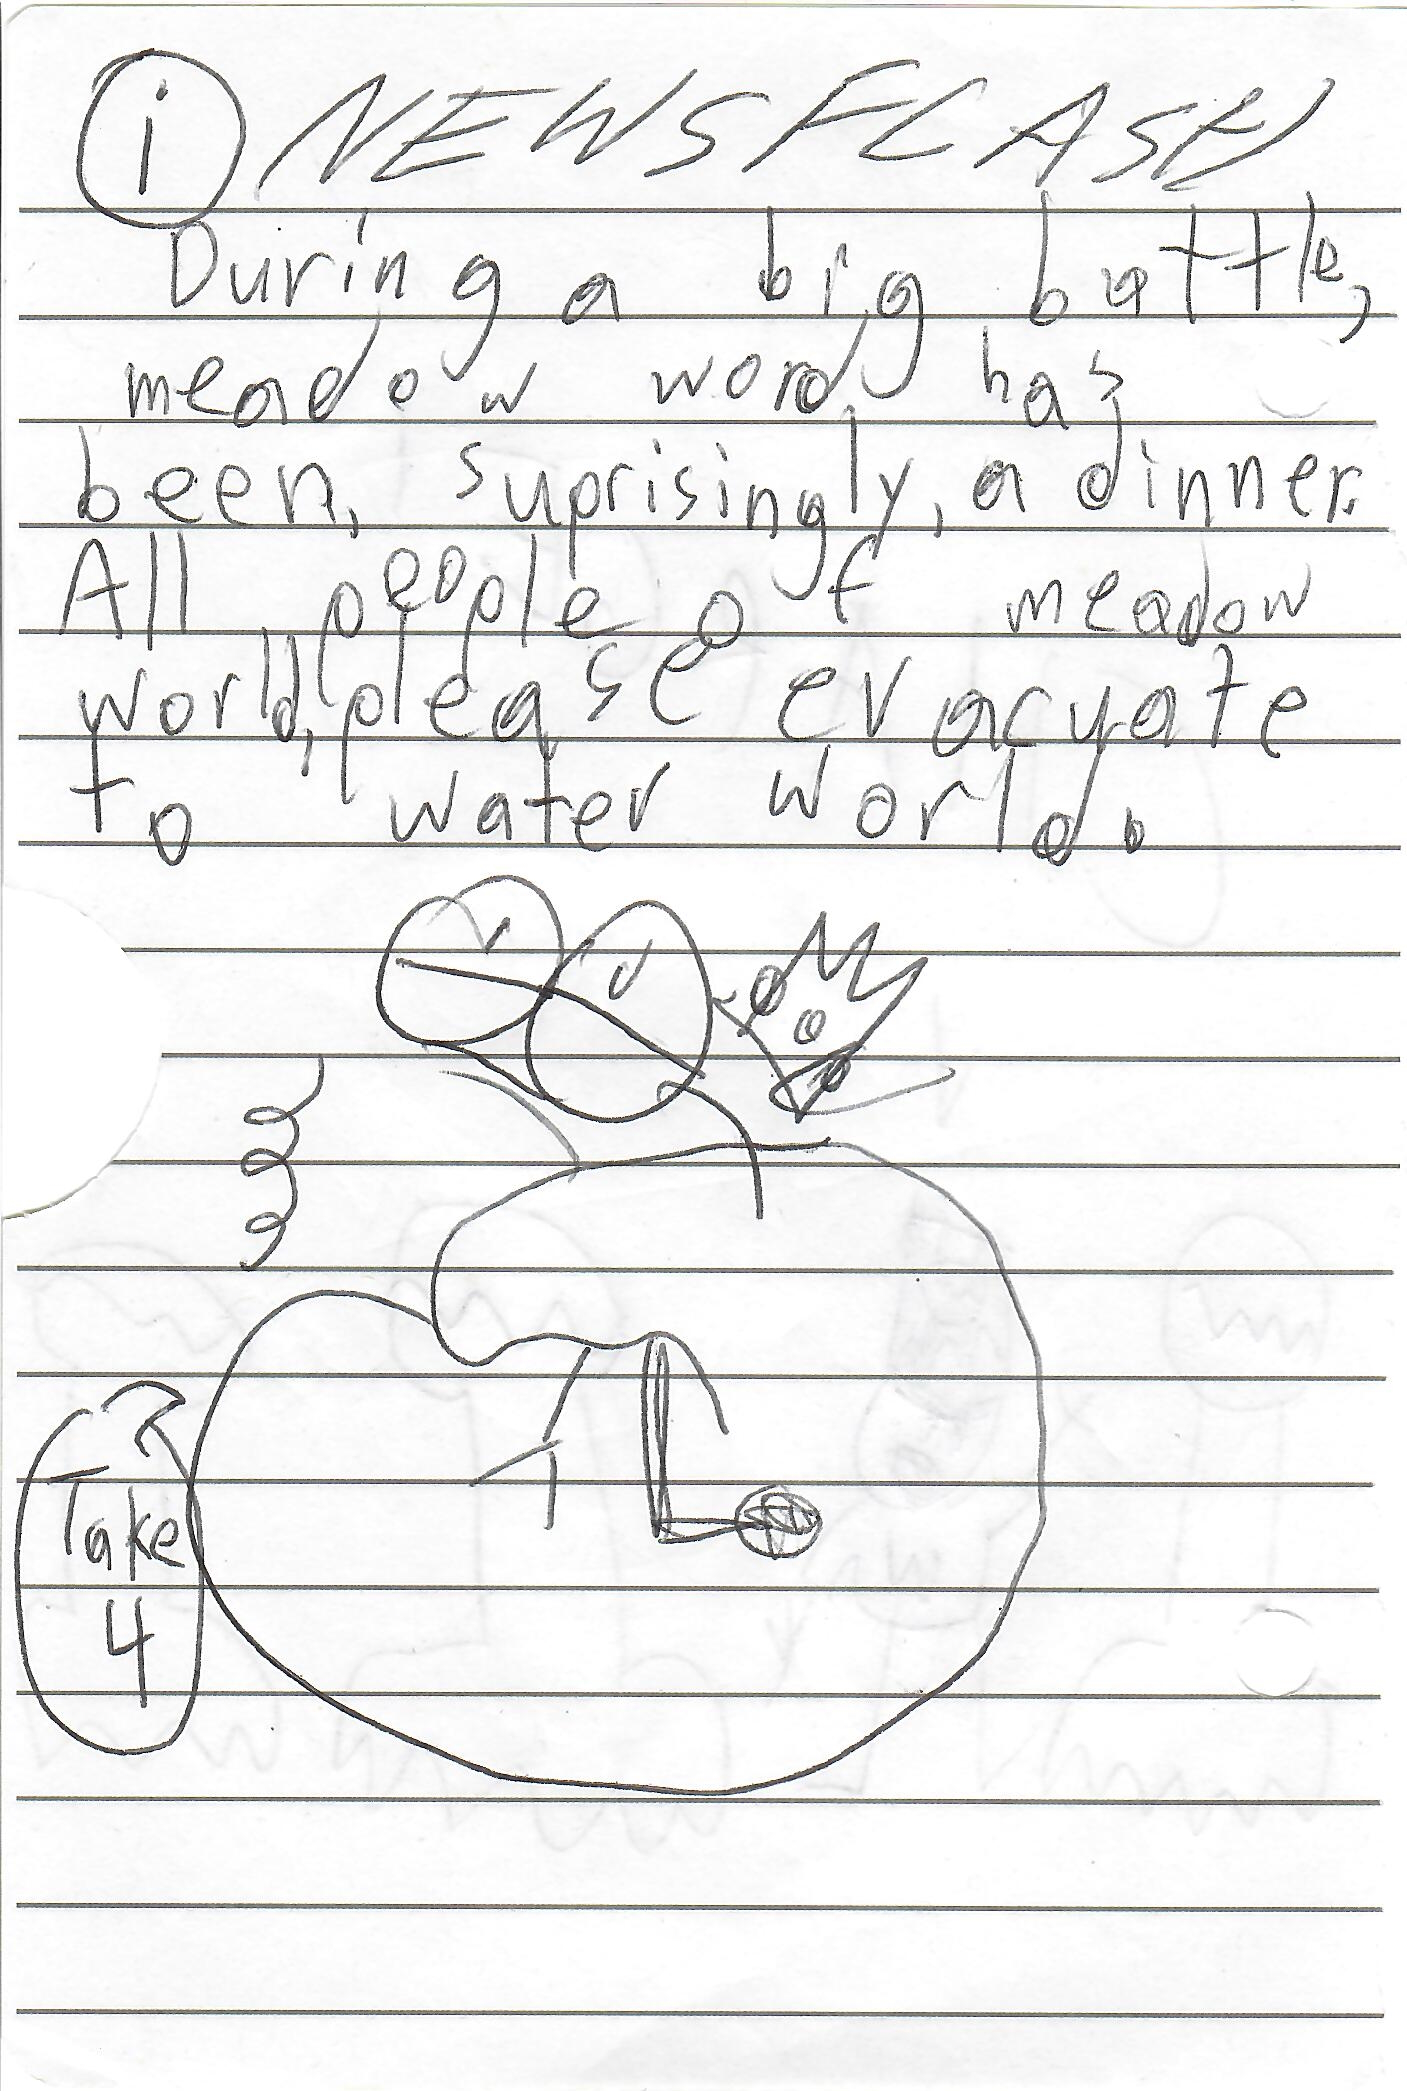 i NEWSFLASH
During a big battle,
meadow word has
been, suprisingly, a dinner.
All people of meadow
world, please evacuate
to water world.
Take
4